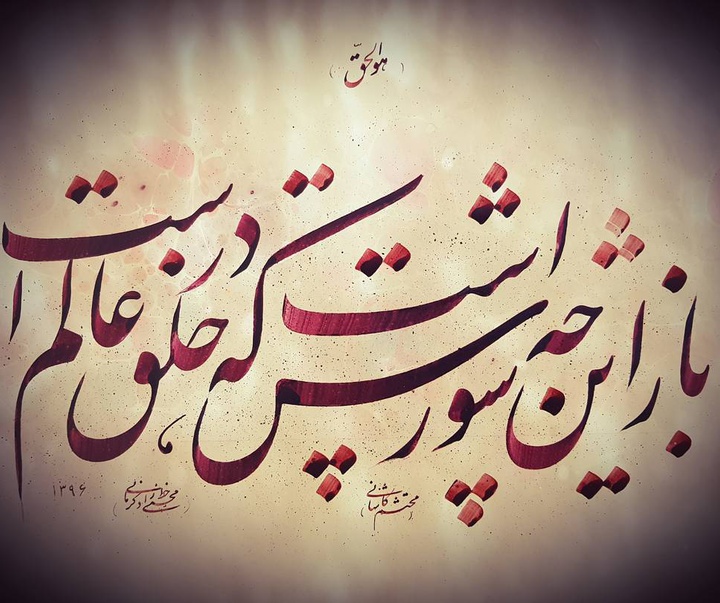 هوالحق
باز این چه شورش است که در خلق عالم است
محتشم کاشانی
۱۳۹۶